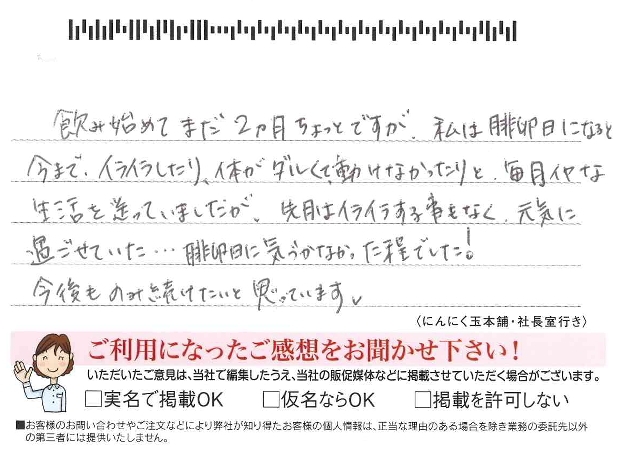 飲み始めてまだ2ヵ月ちょっとですが、私は排卵日になると
今まで、イライラしたり、体がダルくて動けなかったりと、毎月イヤな
生活を送っていましたが、先月はイライラする事もなく、元気に
過ごせていた…排卵日に気づかなかった程でした!
今後ものみ続けたいと思っています。
〈にんにく玉本舗・社長室行き〉
ご利用になったご感想をお聞かせ下さい!
いただいたご意見は、当社で編集したうえ、当社の販促媒体などに掲載させていただく場合がございます。
□実名で掲載OK □仮名ならOK □掲載を許可しない
■お客様のお問い合わせやご注文などにより弊社が知り得たお客様の個人情報は、正当な理由のある場合を除き業務の委託先以外
の第三者には提供いたしません。